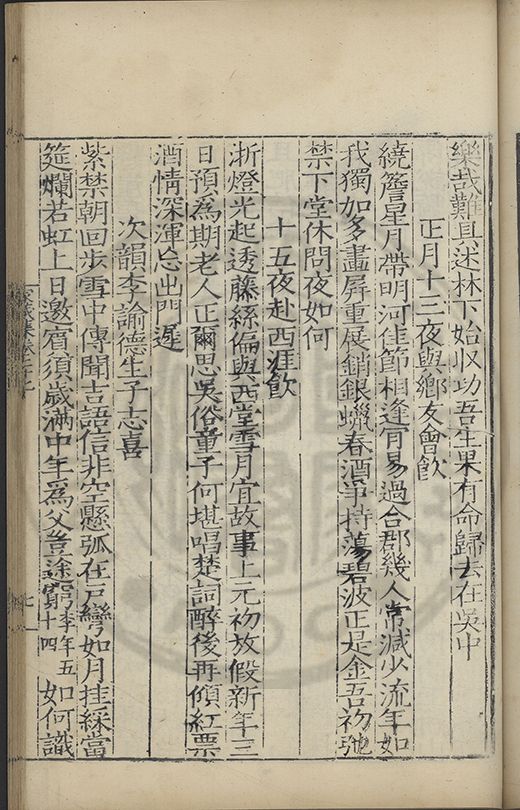 樂哉難具述林下始収功吾生果有命歸去在吳中
正月十三夜與鄉友會飲
繞簷星月帶明河佳節相逢肯易過合郡幾人常減少流年如
我獨加多畫屏重展銷銀蠟春酒爭持蕩碧波正是金吾初弛
禁下堂休問夜如何
十五夜赴西涯飲
浙燈光起透藤絲偏與西堂雪月宜故事上元初放假新年三
日預為期老人正爾思吳俗童子何堪唱楚詞醉後再傾紅票
酒情深渾忘出門遲
次韻李諭德生子志喜
紫禁朝回步雪中傳聞吉語信非空懸弧在戶彎如月挂綵當
筵爛若虹上日邀賓須歲滿中年為父豈途窮李年五十四如何識